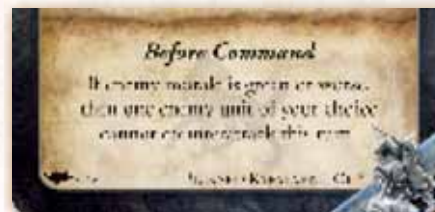 Before Command
If enemy morale is green or worse,
then one enemy unit of your choice
cannot counterattack this turn